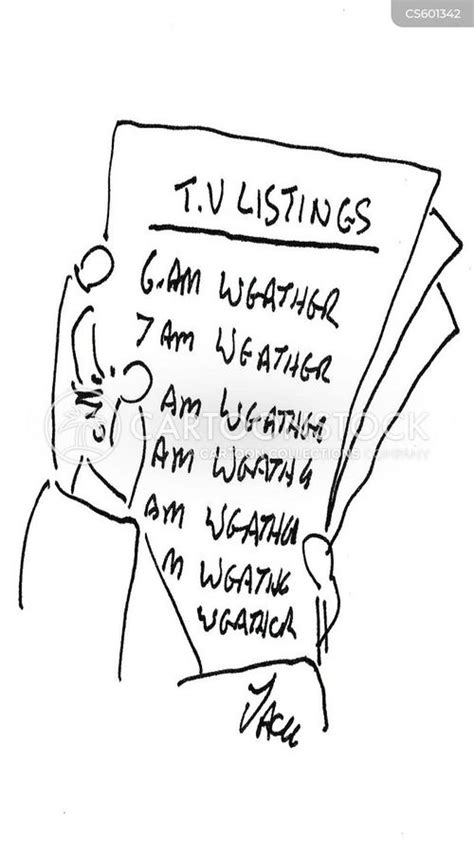 CS601342
T.V LISTINGS
6.AM WEATHER
7 AM WEATHER
AM WEATHER
AM WEATHE
AM WEATHER
M WEATHE
WEATHER
CARTOONSTOCK
CARTOON COLLECTIONS COMPANY
Jack